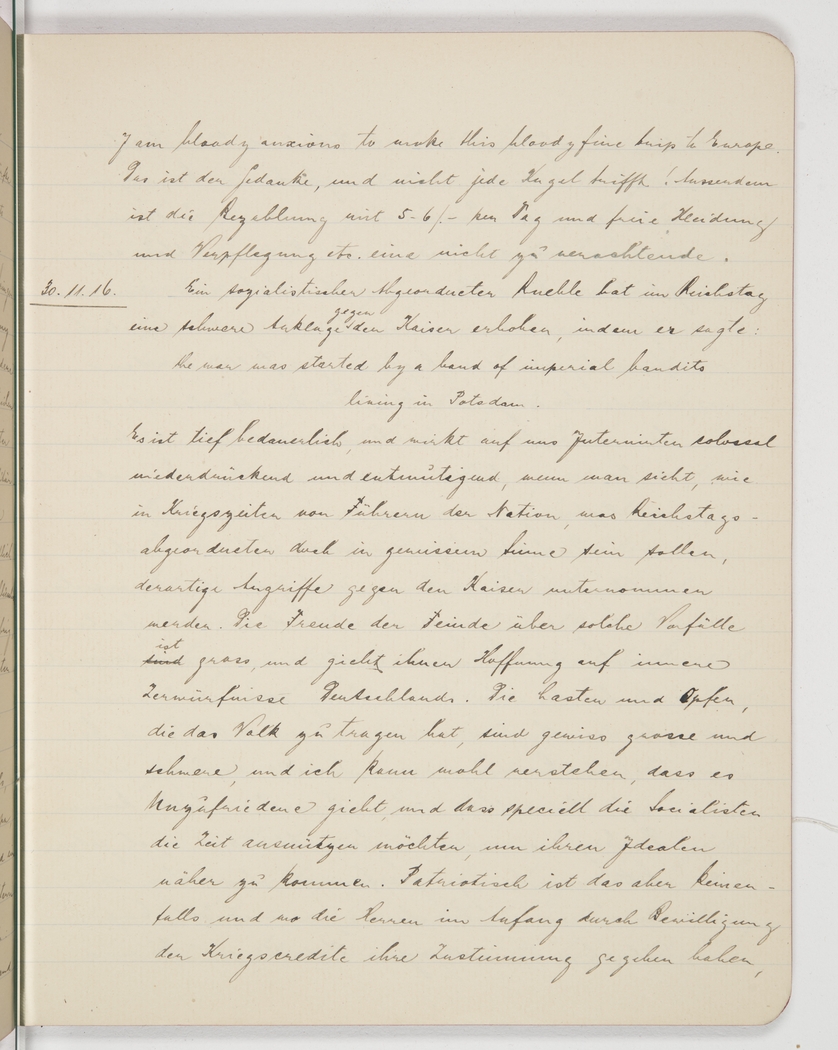 I am bloody anxious to make this bloody fine trip to Europe.
Das ist der Gedanke, und nicht jede Kugel trifft! Ausserdem
ist die Bezahlung mit 5-6/- per Tag und freie Kleidung
und Verpflegung etc. eine nicht zu verachtende.
30.11.16. Ein sozialistischer Abgeordneter Ruehle hat im Reichstag
eine schwere Anklage gegen den Kaiser erhoben, indem er sagte:
the war was started by a band of imperial bandits
living in Potsdam.
Es ist tief bedauerlich, und wirkt auf uns Internirten colossal
niederdrückend und entmutigend, wenn man sieht, wie
in Kriegszeiten von Führern der Nation, was Reichstags-
abgeordneten doch in gewissem Sinne sein sollen,
derartige Angriffe gegen den Kaiser unternommen
werden. Die Freude der Feinde über solche Vorfälle
sind ist gross, und giebt ihnen Hoffnung auf innere
Zerwürfnisse Deutschlands. Die Lasten und Opfer,
die das Volk zu tragen hat, sind gewiss grosse und
schwere, und ich kann wohl verstehen, dass es
Unzufriedene giebt, und dass speciell die Socialisten
die Zeit ausnützen möchten, um ihren Idealen
näher zu kommen. Patriotisch ist das aber keinen-
falls und wo die Herren im Anfang durch Bewilligung
der Kriegscredite ihre Zustimmung gegeben haben,